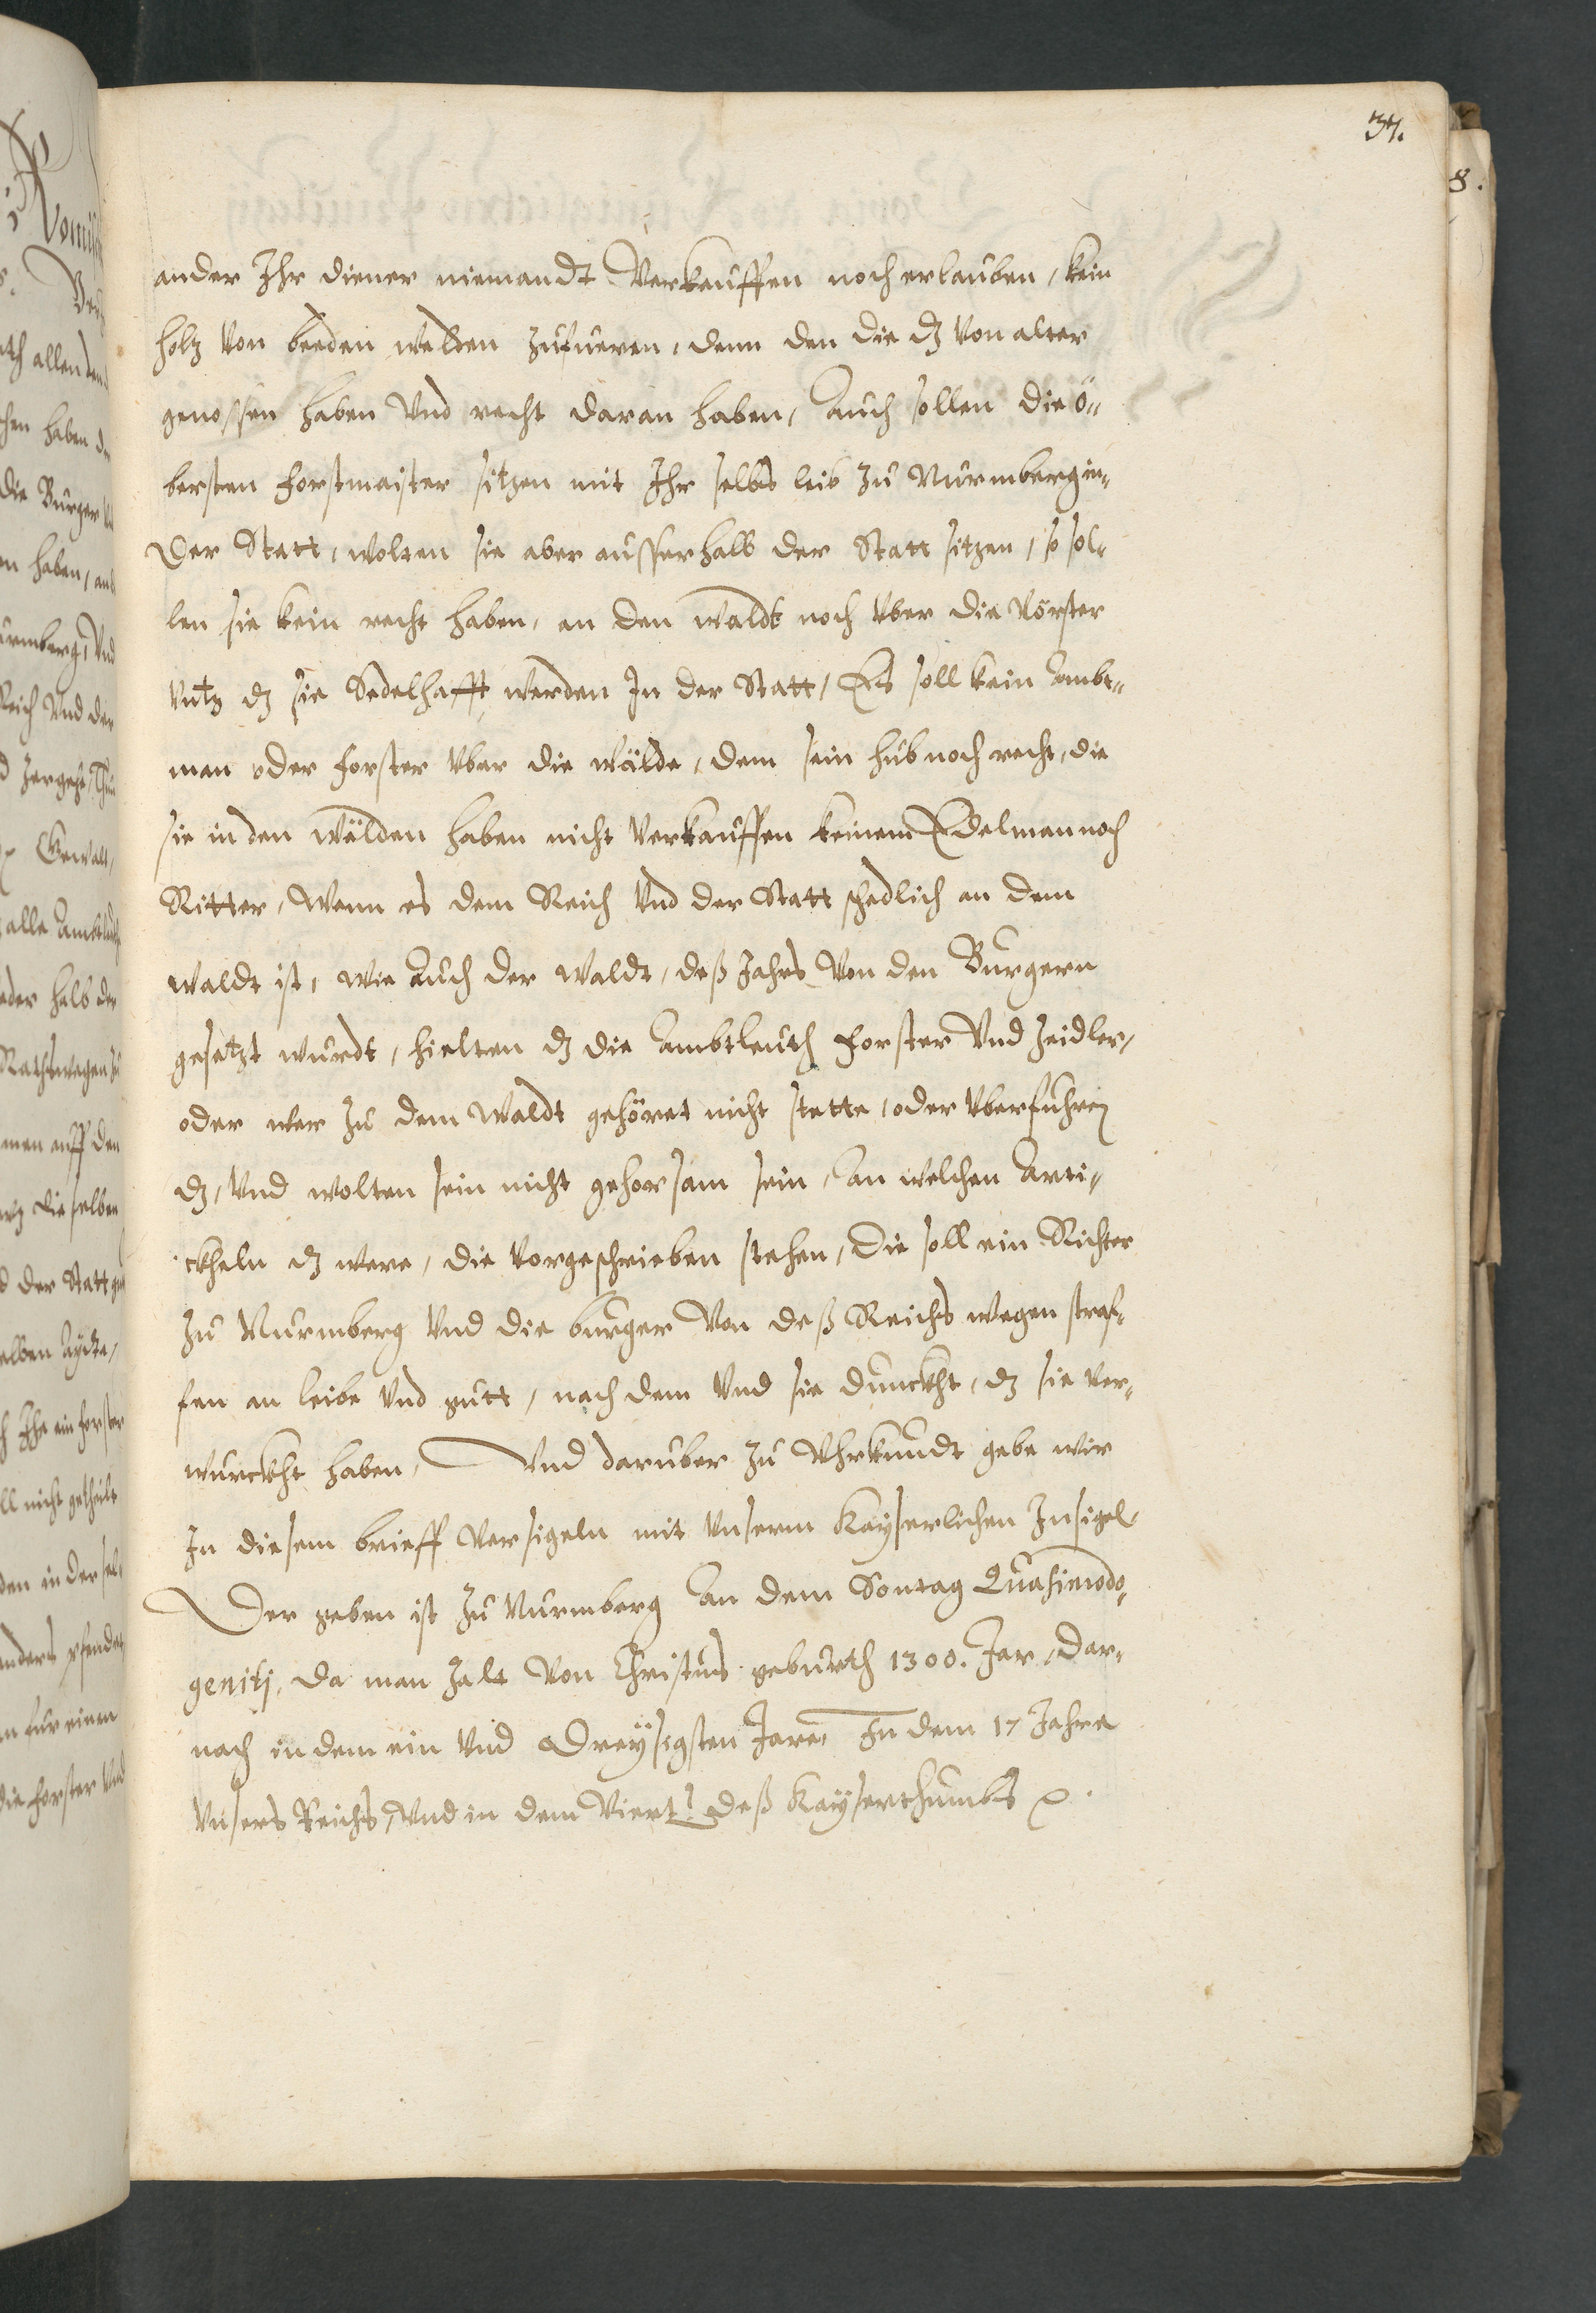 37.
8.
ander Ihr diener niemandt Verkauffen noch erlauben, kein
holtz Von beeden welden zufueren, denn den die dz Von alter
genossen haben Vnd recht daran haben, Auch sollen die ö„
bersten Forstmaister sitzen mit Ihr selbs leib zu Nurmberg in„
Der Statt, wolten sie aber ausserhalb der Statt sitzen, so sol„
len sie kein recht haben, an den waldt noch Vber die Vörster
Vntz dz sie Sedelhafft werden In der Statt, Es soll kein Ambt„
man oder Forster Vber die wälde, dem sein hub noch recht, die
sie in den wälden haben nicht Verkauffen keinem Edelman noch
Ritter, Wann es dem Reich Vnd der Statt schedlich an dem
waldt ist, wie Auch der waldt, deß Jahrs Von den Burgern
gesetzt wurdt, hielten dz die Ambtleuth Forster Vnd Zeidler,
oder wer zu dem Waldt gehöret nicht stette, oder Vberfuhren
dz, Vnd wolten sein nicht gehorsam sein, An welchen Arti„
ckheln dz were, die Vorgeschrieben stehen, Die soll ein Richter
zu Nurmberg Vnd die burger Von deß Reichs wegen straf„
fen an leibe Vnd gutt, nach dem Vnd sie dunckht, dz sie Ver„
wurckht haben, Vnd daruber zu Vhrkundt gebe wir
In diesem brieff Versigeln mit Vnserm Kayserlichen Insigel,
Der geben ist zu Nurmberg An dem Sontag Quasimodo„
genitj, da man zalt Von Christus geburth 1300. Jar, dar„
nach in dem ein Vnd Dreysigsten Jare, In dem 17 Jahre
Vnsers Reichs, Vnd in dem Viert? deß Kayserthumbs